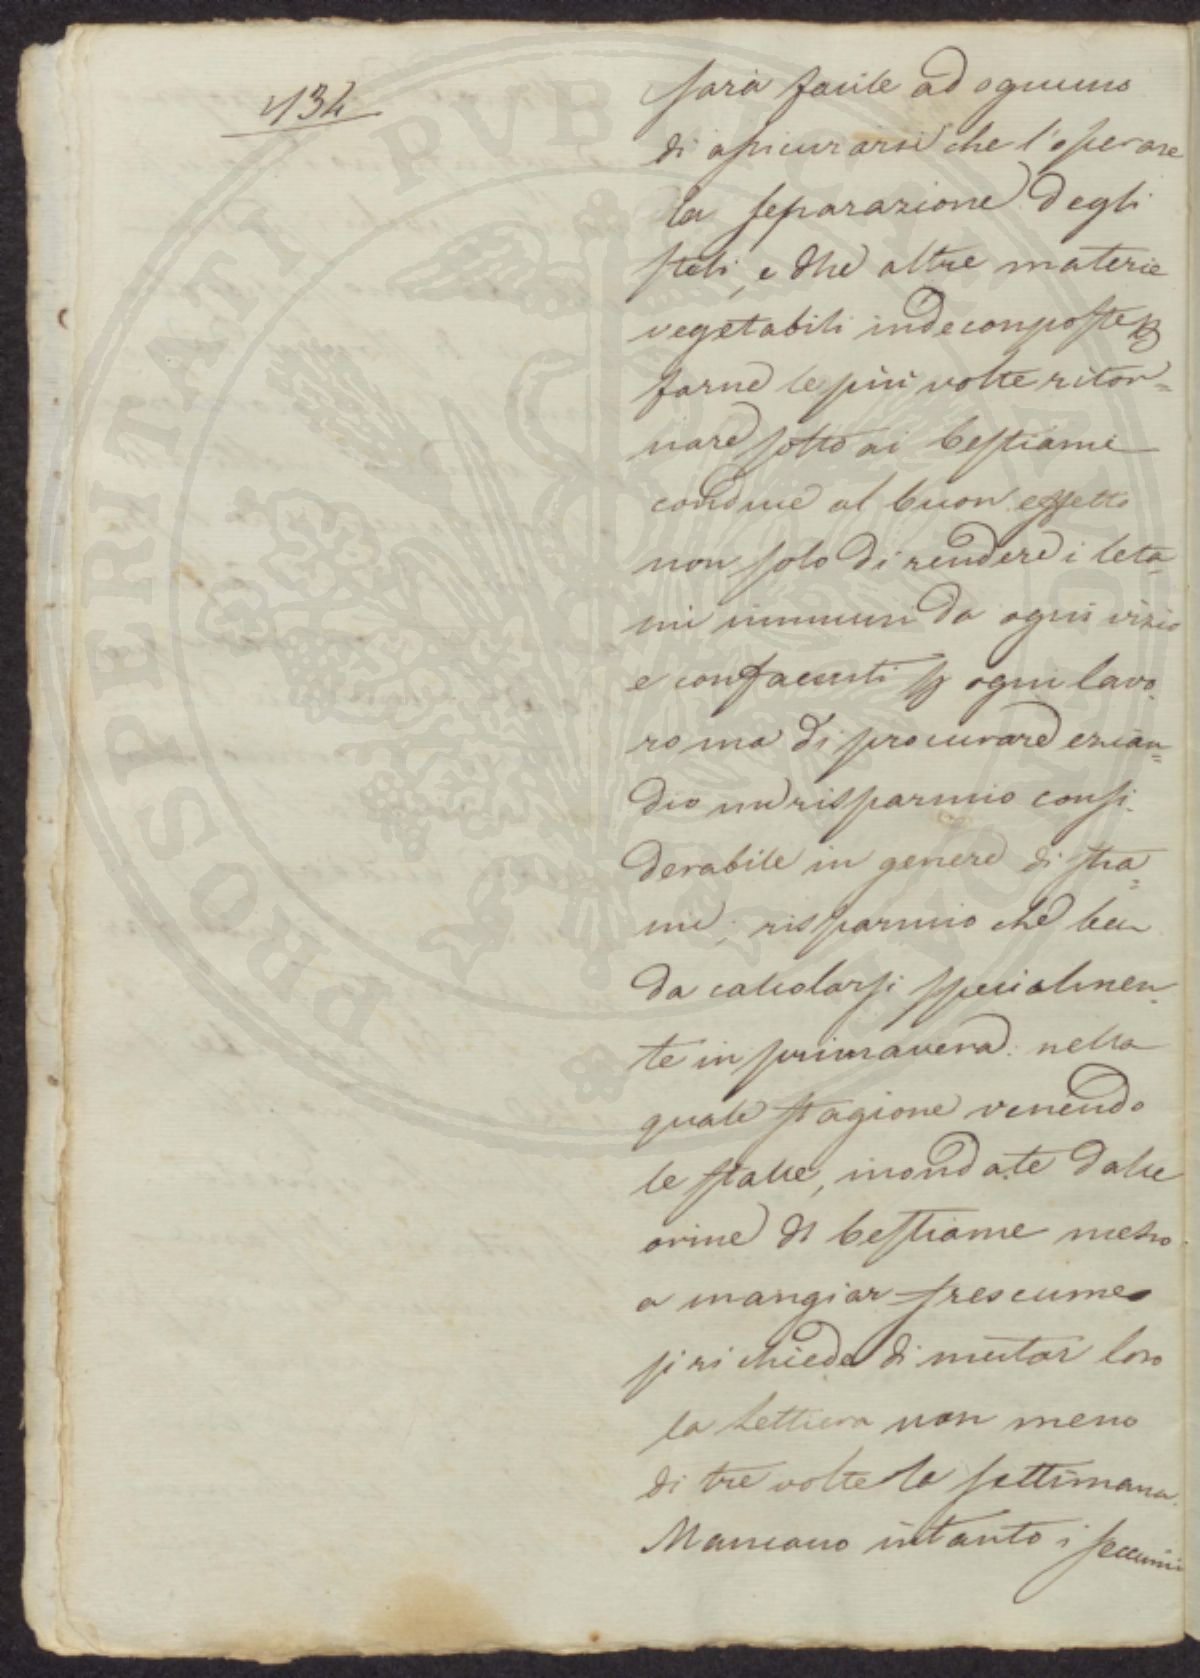 134
sarà facile ad ognuno
di assicurarsi che l'operare
la separazione degli
steli, e dlle altre materie
vegetabili indeconposte p
farne le più volte ritor=
nare sotto ai bestiami
conduce al buon effetto
non solo di rendere i leta-
mi immuni da ogni vizio
e confacenti p ogni lavo-
ro ma di procurare ezian=
dio un risparmio consi-
derabile in genere di stra=
mi; risparmio che
da calcolarsi specialmen-
te in primavera: nella
quale stagione venendo
le stalle, inondate dalle
orine dl bestiame messo
a mangiar frescume
si richiede di mutar loro
la Lettiera non meno
di tre volte la settimana.
Mancano intanto i seccumi
PROSPERITATI PVBLICAE AVGENDAE